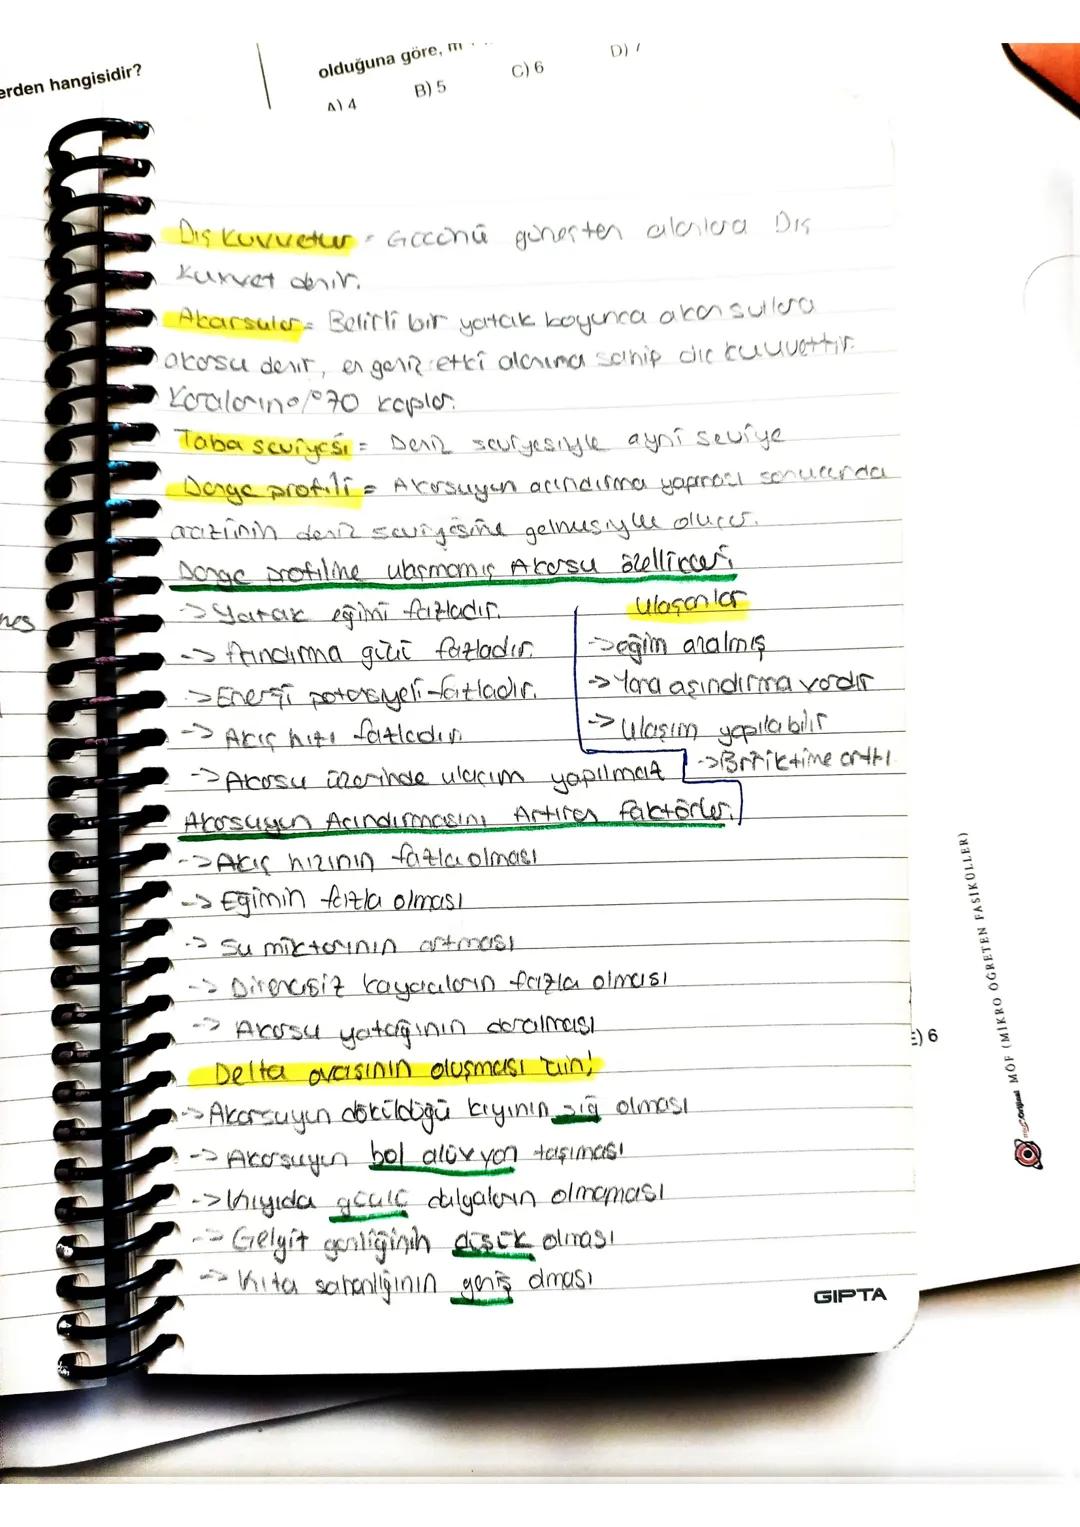 erden hangisidir?
olduğuna göre, m
A) 4
B) 5
C) 6
D) 7
Dış kuvvetler = Gücünü güneşten alanlara Dış
kuvvet denir.
Akarsular = Belirli bir yatak boyunca akan sulara
akarsu denir, en geniş etki alanına sahip dış kuvvettir.
Karaların %70 kaplar.
Taba seviyesi = Deniz seviyesiyle ayni seviye
Denge profili = Akarsuyun aşındırma yapması sonucunda
arazinin deniz seviyesine gelmesiyle oluşur.
Denge profiline ulaşmamış Akarsu özellikleri
-> Yatak eğimi fazladır.
-> Aşındırma gücü fazladır.
-> Enerji potansiyeli fazladır.
-> Akış hızı fazladır.
-> Akarsu üzerinde ulaşım yapılmaz
Ulaşanlar
-> eğim azalmış
-> Yana aşındırma vardır
-> Ulaşım yapılabilir
-> Biriktirme arttı
Akarsuyun Aşındırmasını Artıran faktörler.
-> Akış hızının fazla olması
-> Eğimin fazla olması
-> Su miktarının artması
-> Dirençsiz kayaçların fazla olması
-> Akarsu yatağının daralması
Delta ovasının oluşması için!
-> Akarsuyun döküldüğü kıyının sığ olması
-> Akarsuyun bol alüvyon taşıması
-> Kıyıda güçlü dalgaların olmaması
-> Gelgit genliğinin düşük olması
-> Kıta sahanlığının geniş olması
GIPTA
nes
E) 6
MÖF (MİKRO ÖĞRETEN FASİKÜLLER)